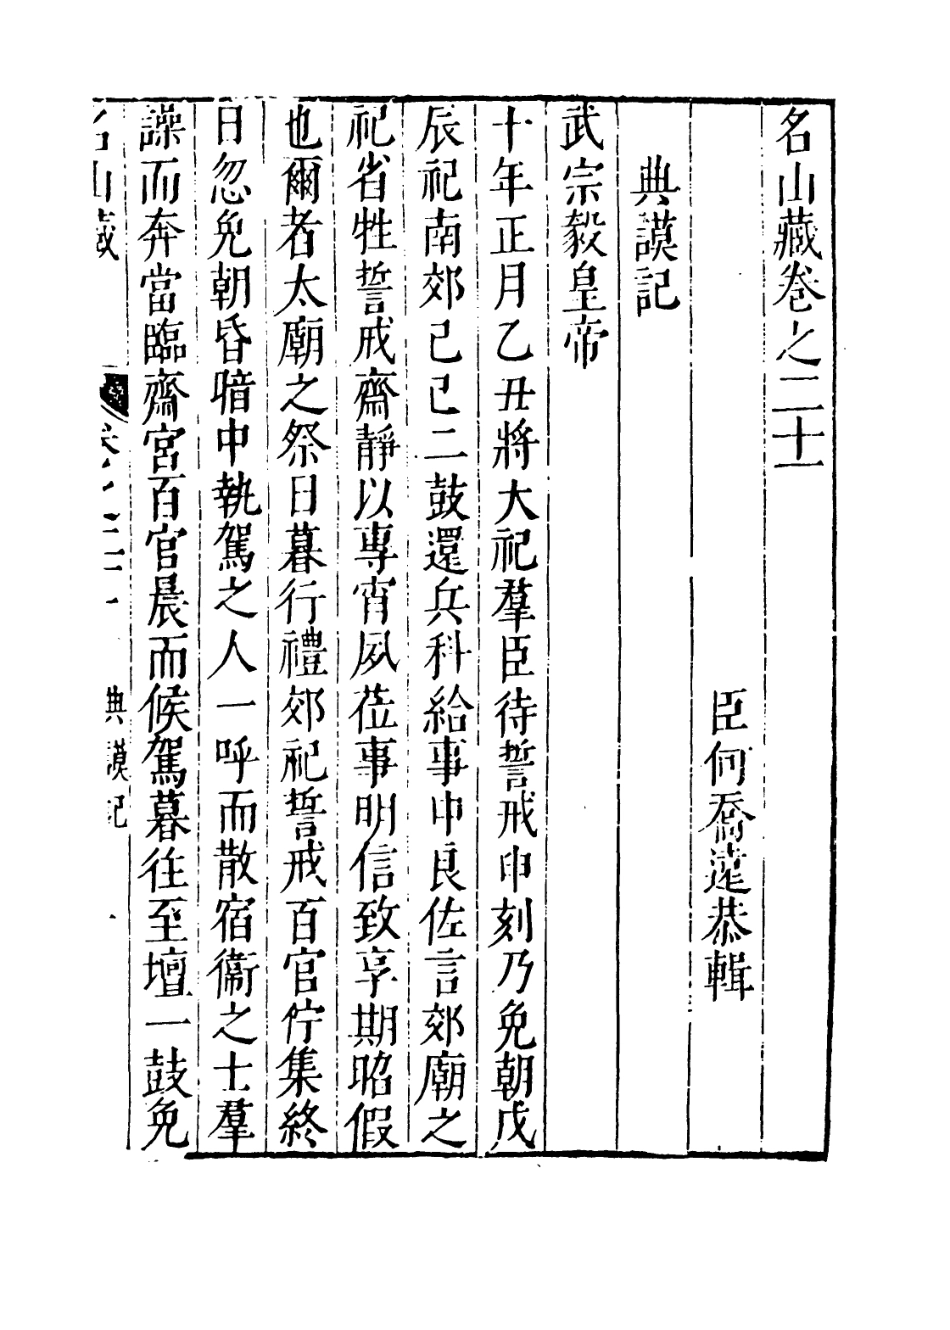 名山藏卷之二十一
臣何喬遠恭輯
典謨記
武宗毅皇帝
十年正月乙丑將大祀羣臣待誓戒申刻乃免朝戊
辰祀南郊己巳二鼓還兵科給事中良佐言郊廟之
祀省牲誓戒齋靜以專宵夙莅事明信致享期昭假
也爾者太廟之祭日暮行禮郊祀誓戒百官佇集終
日忽免朝昏暗中執駕之人一呼而散宿衞之士羣
譟而奔當臨齋宮百官晨而候駕暮往至壇一鼓免
名山藏 卷之二十一 典謨記 一